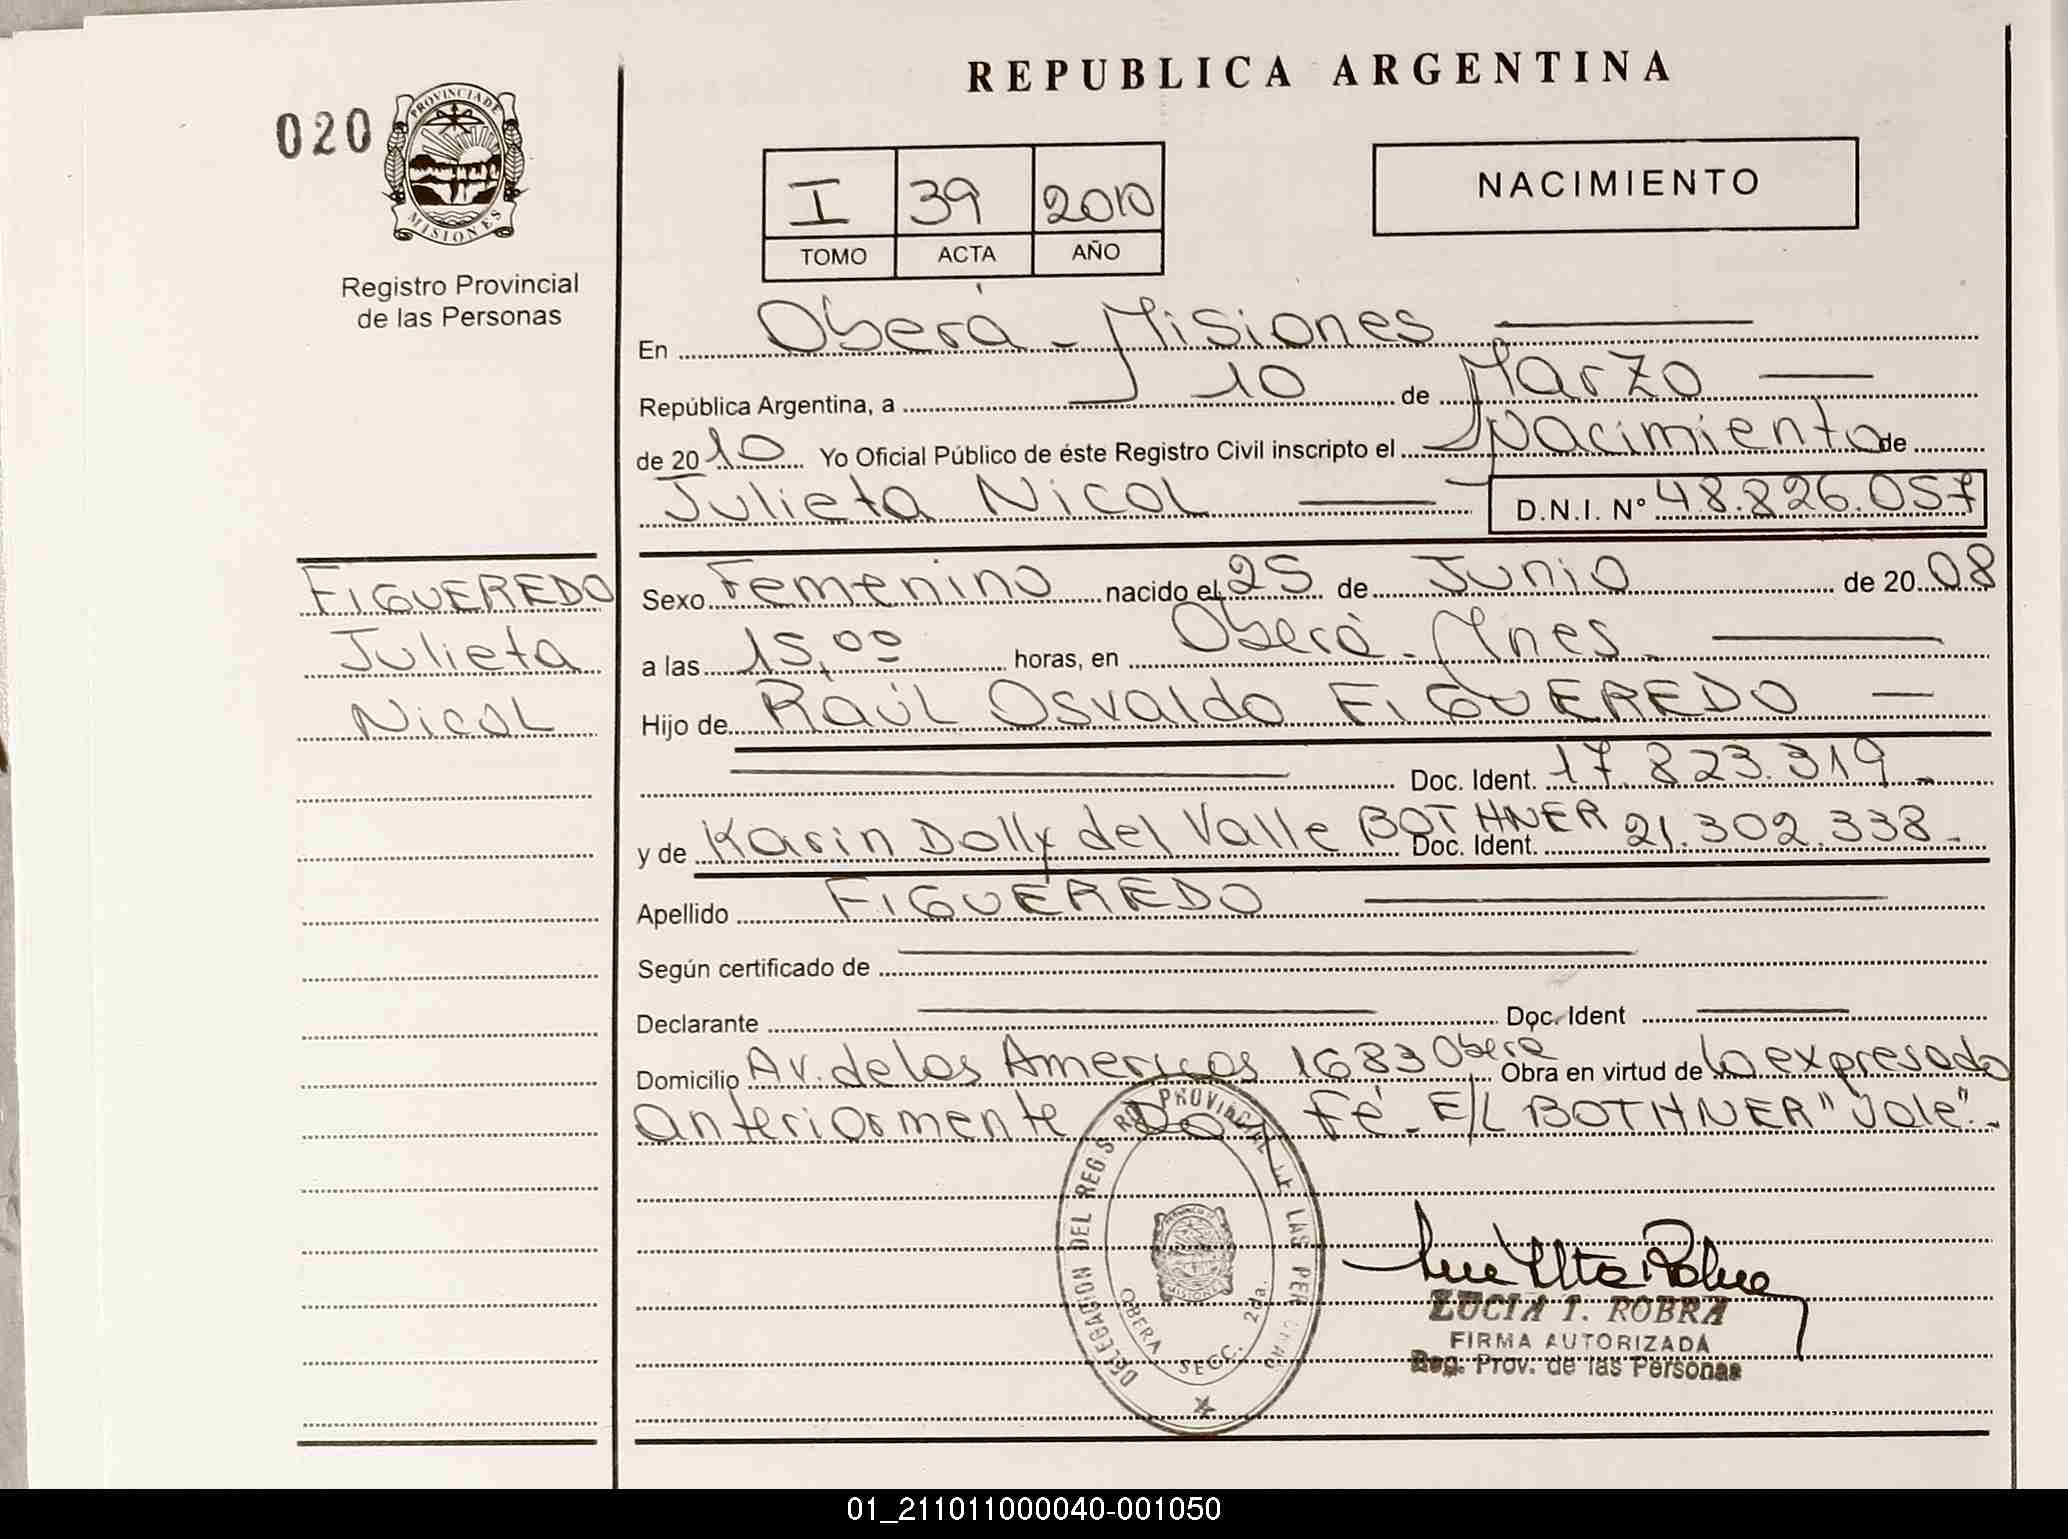 020
PROVINCIA DE
MISIONES
Registro Provincial
de las Personas
REPUBLICA ARGENTINA
I 39 2010
TOMO ACTA AÑO
NACIMIENTO
En Oberá - Misiones
República Argentina, a 10 de Marzo
de 2010 Yo Oficial Público de éste Registro Civil inscripto el Nacimiento de
Julieta Nicol D.N.I. Nº 48.826.057
FIGUEREDO
Julieta
Nicol
Sexo Femenino nacido el 25 de Junio de 2008
a las 15,00 horas, en Oberá - Mnes.
Hijo de Raúl Osvaldo FIGUEREDO
Doc. Ident. 17.823.319.-
y de Karin Dolly del Valle BOTHNER Doc. Ident. 21.302.338.-
Apellido FIGUEREDO
Según certificado de
Declarante Doc. Ident
Domicilio Av. de las Americas 1683 Oberá Obra en virtud de lo expresado
anteriormente Doy Fé.- E/L BOTHNER "Vale".-
DELEGACION DEL REGISTRO PROVINCIAL DE LAS PERSONAS
OBERA SECC. 2da.
LUCIA I. ROBRA
FIRMA AUTORIZADA
Reg. Prov. de las Personas
01_211011000040-001050